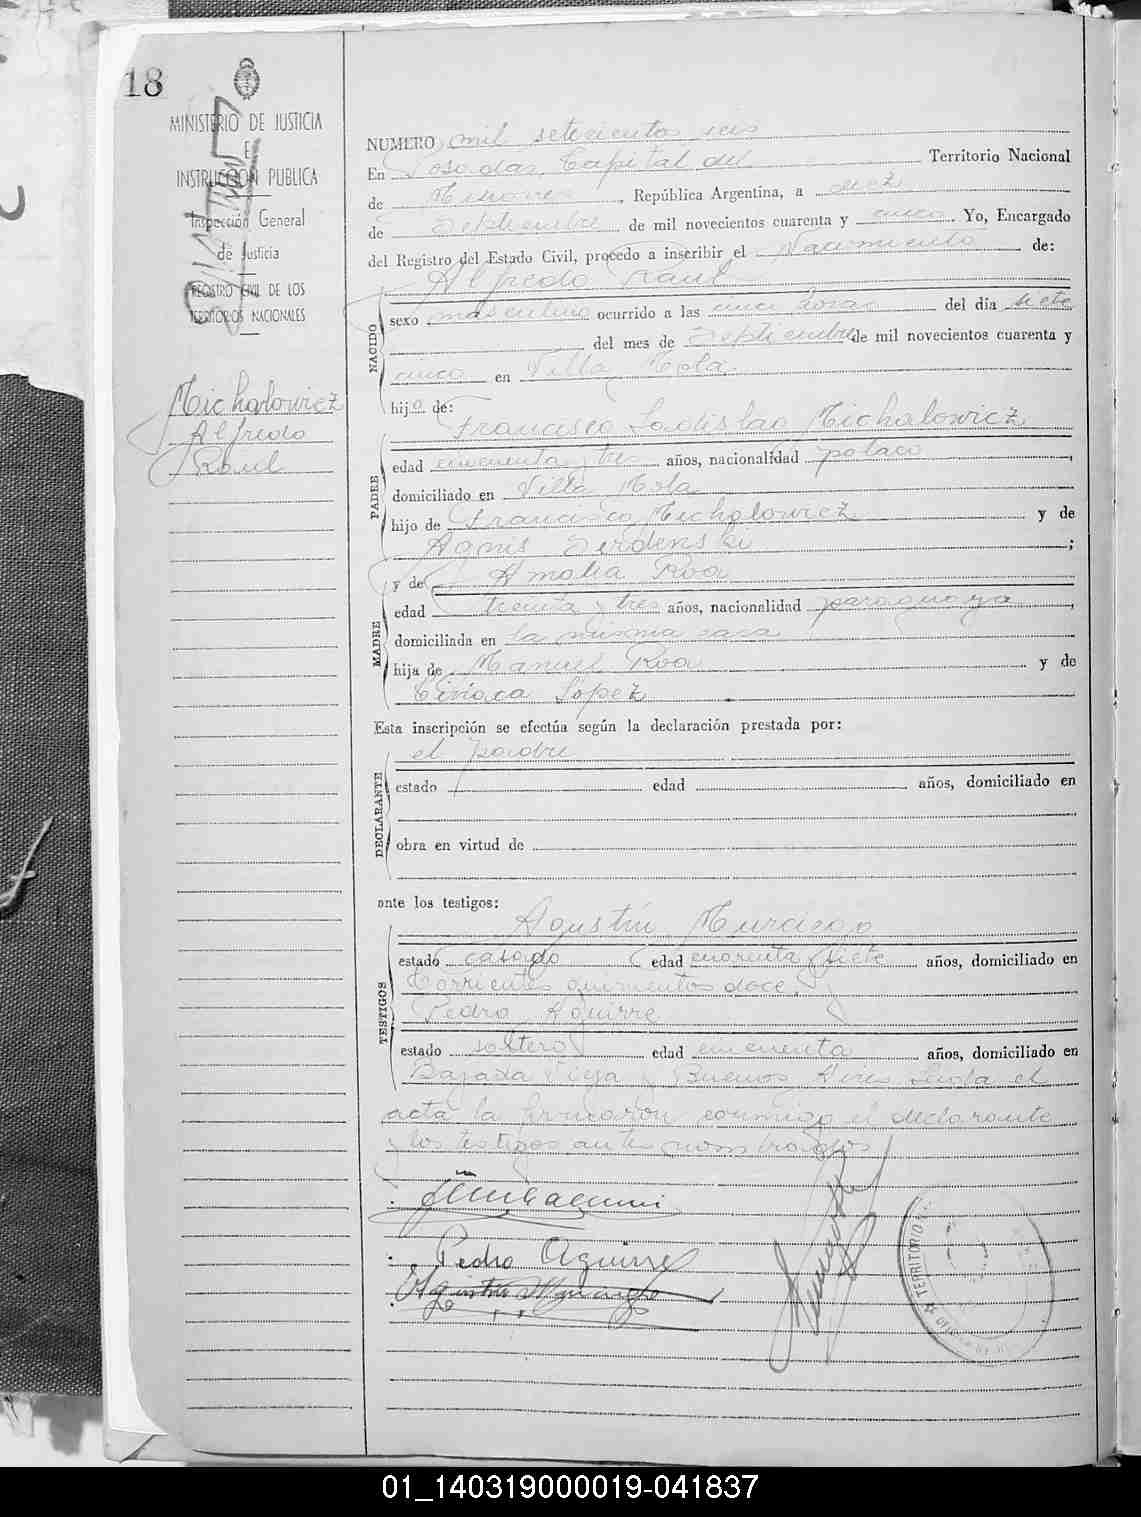 18
MINISTERIO DE JUSTICIA
E
INSTRUCCION PUBLICA
Inspección General
de Justicia
REGISTRO CIVIL DE LOS
TERRITORIOS NACIONALES
Michalowicz
Alfredo
Raul
NUMERO mil setecientos seis
En Posadas, Capital del Territorio Nacional
de Misiones, República Argentina, a diez
de Septiembre de mil novecientos cuarenta y cinco. Yo, Encargado
del Registro del Estado Civil, procedo a inscribir el Nacimiento de:
Alfredo Raul
NACIDO
sexo masculino ocurrido a las cinco horas del día siete
del mes de Septiembre de mil novecientos cuarenta y
cinco en Villa Mola
hijo de:
Francisco Ladislao Michalowicz
PADRE
edad cincuenta y tres años, nacionalidad polaco,
domiciliado en Villa Mola
hijo de Francisco Michalowicz y de
Agnis;
y de Amalia Roa
MADRE
edad treinta y tres años, nacionalidad paraguaya,
domiciliada en la misma casa
hija de Manuel Roa y de
Lopez
Esta inscripción se efectúa según la declaración prestada por:
el padre
DECLARANTE
estado edad años, domiciliado en
obra en virtud de
ante los testigos:
Agustin
TESTIGOS
estado casado edad cuarenta y siete años, domiciliado en
Corrientes quinientos doce,
Pedro Aguirre
estado soltero edad cincuenta años, domiciliado en
Bajada Vieja y Buenos Aires Leida el
acta la firmaron conmigo el declarante
y los testigos antes nombrados
Pedro Aguirre
Agustin
TERRITORIO
01_140319000019-041837